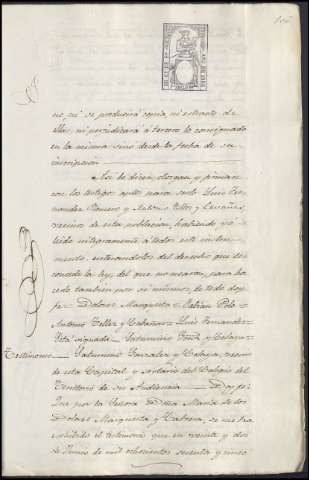 no, ni se producirá copia, ni estracto de
ellas, ni perjudicará á tercero lo consignado
en la misma sino desde la fecha de su
inscripcion
Así lo dicen, otorgan y firman
con los testigos aptos para serlo Luis Fer-
nandez Romero y Antonio Tellez y
vecinos de esta poblacion, habiendo yo
leido integramente á todos este instru-
mento, enterandolos del derecho que les
concede la ley, del que no usaron, para ha-
cerlo tambien por si mismos, de todo doy
fe = Dolores Marqueta = Fabian Polo =
Antonio Tellez y = Luis Fernandez =
Está signado = Saturnino
Testimonio = Saturnino Gonzalez y Celaya, vecino
de esta Capital y Notario del Colegio del
Territorio de su Audiencia = Doy fe:
Que por la Señora Doña Maria de los
Dolores Marqueta y Cabrera, se me ha
exhibido el testimonio que en veinte y dos
de Junio de mil ochocientos sesenta y cinco